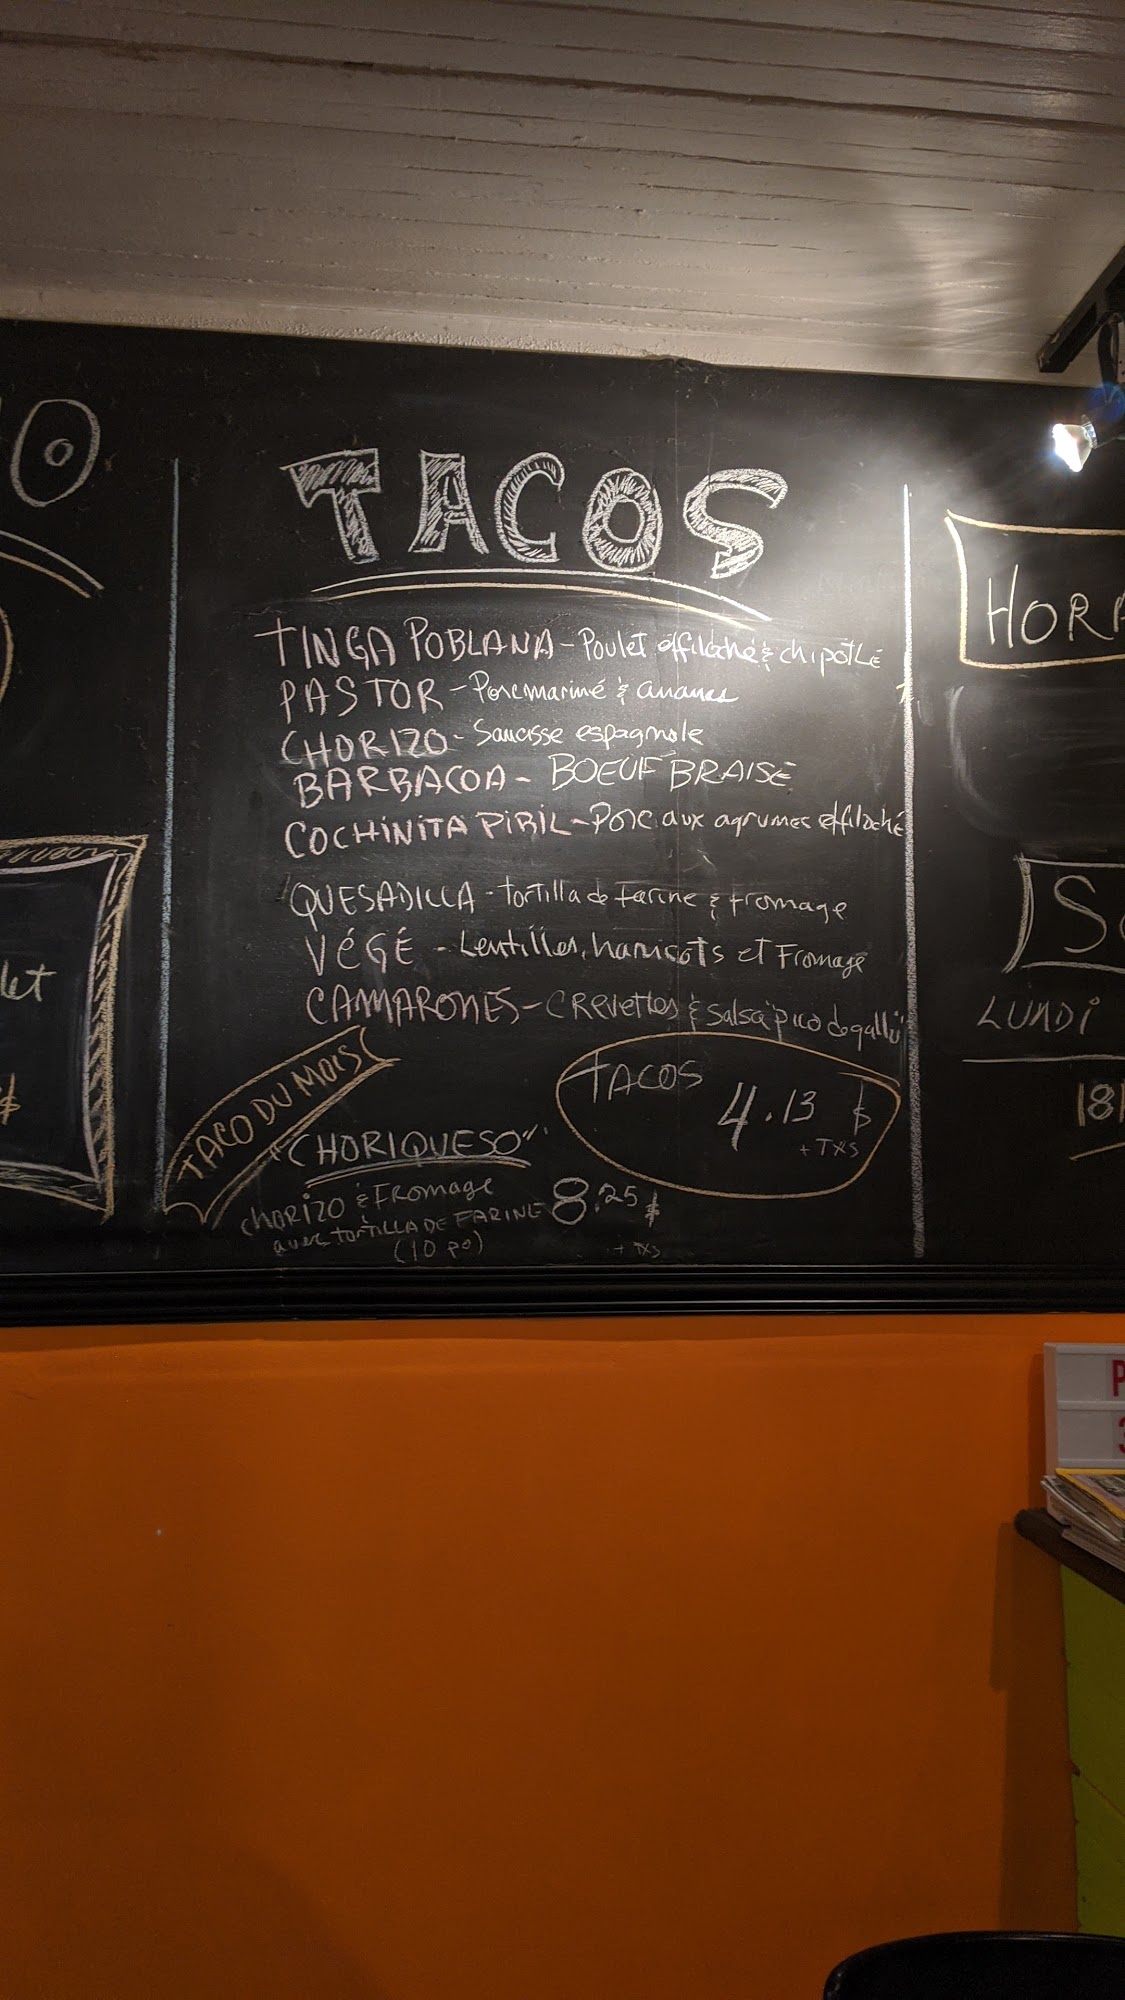 O
TACOS
TINGA POBLANA - Poulet effiloché & chipotle
PASTOR - Porc mariné & ananas
CHORIZO - Saucisse espagnole
BARBACOA - BOEUF BRAISÉ
COCHINITA PIBIL - Porc aux agrumes effiloché
QUESADILLA - tortilla de farine & fromage
VÉGÉ - Lentilles, haricots et Fromage
CAMARONES - crevettes & salsa pico de gallo
TACOS
4.13 $
+ TXS
TACO DU MOIS
"CHORIQUESO"
chorizo & Fromage
avec tortilla de FARINE
(10 po)
8.25 $
+ TXS
let
$
HORA
S
LUNDI
18
P
3